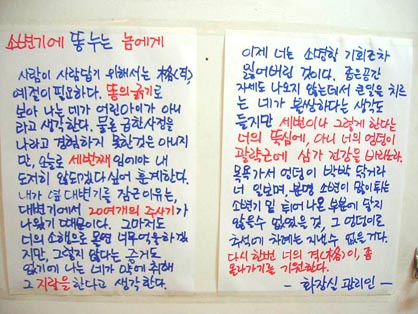 소변기에 똥누는 놈에게
사람이 사람답기 위해서는 格(격),
예절이 필요하다. 똥의 굵기로
보아 나는 네가 어린아이가 아니
라고 생각한다. 물론 급한사정을
나라고 경험하지 못한것은 아니지
만, 오늘로 세번째임에야 내
도저히 않되겠다싶어 통제한다.
내가 옆 대변기를 잠근이유는,
대변기에서 20여개의 주사기가
나왔기 때문이다. 그마저도
너의 소행으로 몰면 너무 억울하겠
지만, 그렇지 않다는 증거도
없기에 나는 네가 마약에 취해
그 지랄을 한다고 생각한다.
이제 너는 소명할 기회조차
잃어버린 것이다. 좁은공간
자세도 나오지 않는데서 큰일을 치르
는 네가 불쌍하다는 생각도
들지만 세번이나 그렇게 한다는
너의 뚝심에, 아니 너의 엉덩이
괄약근에 삼가 건강을 바라노라.
목욕가서 엉덩이 박박 닦거라
너 일보며, 분명 소변이 많이 튀는
소변기 밑 튀어나온 부분에 닿지
않을수 없었을 것, 그 엉덩이로
추석에 차례는 지낼수 없을거다.
다시 한번 너의 격(格)이, 좀
올라가기를 기원한다.
- 화장실 관리인 -